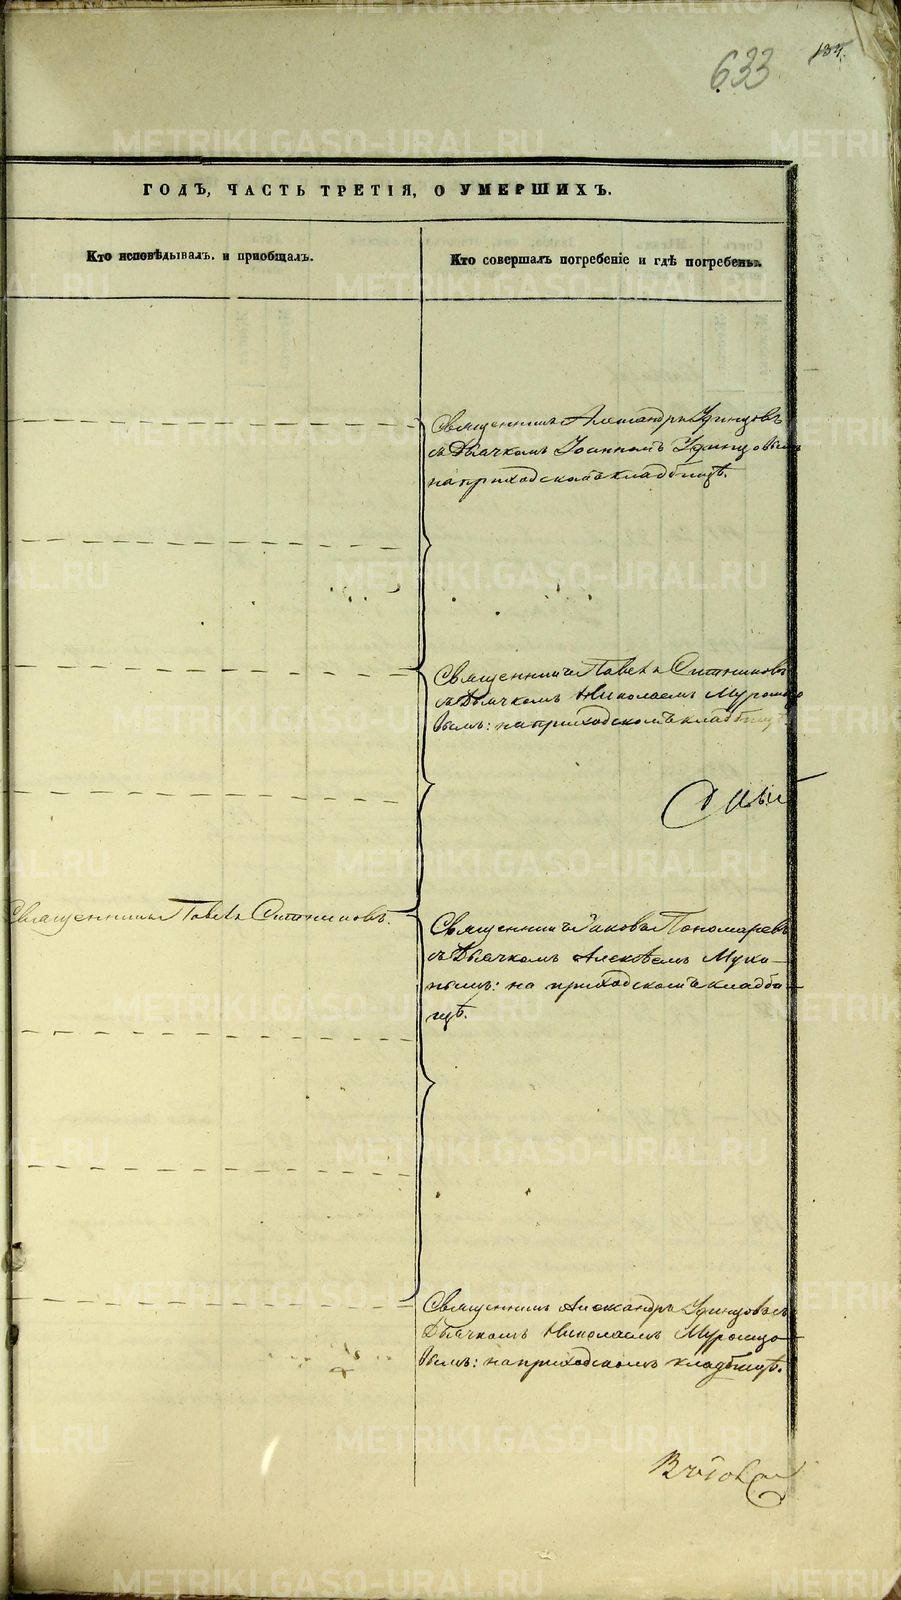 633
METRIKI.GASO-URAL.RU
ГОДЪ, ЧАСТЬ ТРЕТІЯ, О УМЕРШИХЪ.
Кто исповѣдывалъ и пріобщалъ.
Кто совершалъ погребеніе и гдѣ погребены.
Священникъ Александръ Удинцовъ
съ Дьячкомъ Іоанномъ Удинцовымъ
на приходскомъ кладбищѣ.
Священникъ Павелъ Ситниковъ
съ Дьячкомъ Николаемъ Муромцо
вымъ: на приходскомъ кладбищѣ.
Священникъ Павелъ Ситниковъ.
Священникъ Іаковъ Пономаревъ
съ Дьячкомъ Алексѣемъ
на приходскомъ кладби-
щѣ.
Священникъ Александръ Удинцовъ съ
Дьячкомъ Николаемъ Муромцо-
вымъ: на приходскомъ кладбищѣ.